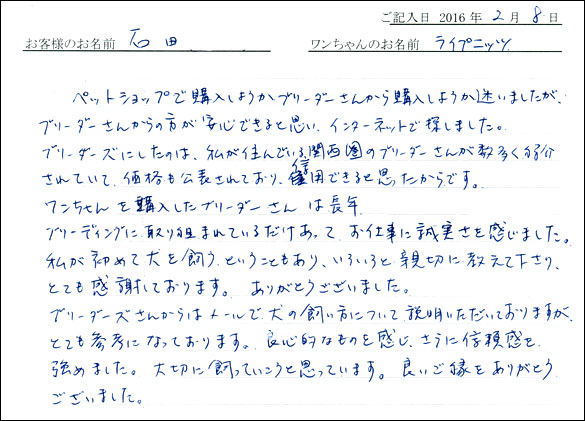 ご記入日 2016 年 2 月 8 日
お客様のお名前 石田 ワンちゃんのお名前 ライプニッツ
ペットショップで購入しようかブリーダーさんから購入しようか迷いましたが、
ブリーダーさんからの方が安心できると思い、インターネットで探しました。
ブリーダーズにしたのは、私が住んでいる関西圏のブリーダーさんが数多く紹介
されていて、価格も公表されており、信用できると思ったからです。
ワンちゃんを購入したブリーダーさんは長年
ブリーディングに取り組まれているだけあって、お仕事に誠実さを感じました。
私が初めて犬を飼う、ということもあり、いろいろと親切に教えて下さり、
とても感謝しております。ありがとうございました。
ブリーダーズさんからはメールで、犬の飼い方について説明いただいておりますが、
とても参考になっております。良心的なものを感じ、さらに信頼感を
強めました。大切に飼っていこうと思っています。良いご縁をありがとう
ございました。